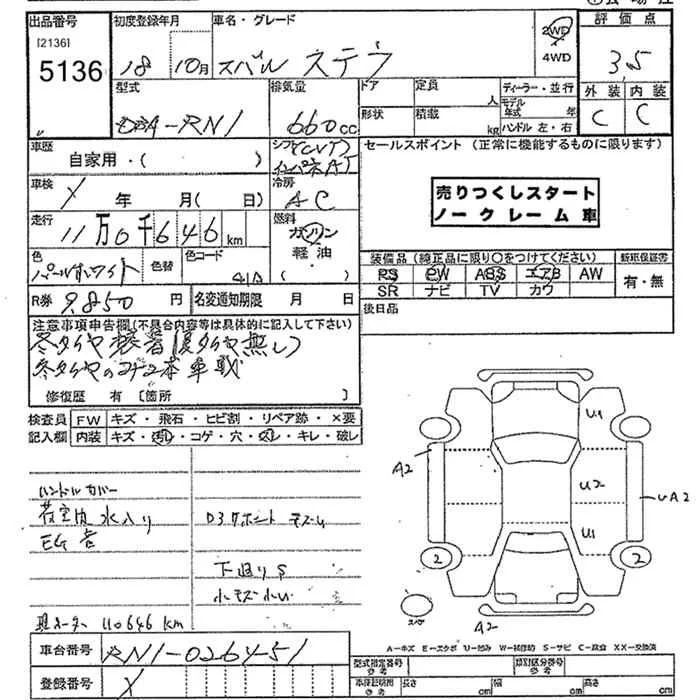 出品番号
[2136]
5136
初度登録年月
18 10月
車名・グレード
スバル ステラ
2WD
4WD
評価点
3,5
型式
DBA-RN1
排気量
660cc
ドア
定員
人
形状
積載
kg
ディーラー・並行
モデル年式 年
ハンドル 左・右
外装 内装
C C
車歴
自家用・( )
シフト (CVT)
インパネAT
セールスポイント (正常に機能するものに限ります)
売りつくしスタート
ノークレーム車
車検
X 年 月( 日)
冷房
AC
走行
11万0千646km
燃料
ガソリン
軽油・
( )
色
パールホワイト
色替
色コード
41A
装備品(純正品に限り○をつけてください)
PS PW ABS エアB AW
SR ナビ TV カワ
新車保証書
有・無
R券 9,850 円
名変通知期限 月 日
後日品
注意事項申告欄(不具合内容等は具体的に記入して下さい)
冬タイヤ装着(夏タイヤ無し)
冬タイヤのみ 本車載
修復歴 有 [箇所 ]
検査員記入欄
FW キズ・飛石・ヒビ割・リペア跡・×要
内装 キズ・汚れ・コゲ・穴・スレ・キレ・破レ
ハンドルカバー
荷室内水入り
EG音
下廻りS
小キズ小凹
現メーター 110646 km
U1
A2
U2
UA2
U1
2
2
スペア
A2
A=キズ E=エクボ U=凹み W=補修跡 S=サビ C=腐食 XX=交換済
車台番号
RN1-026451
登録番号
X
型式指定番号
参考
類別区分番号
参考
車検証明用
参考
長さ cm
幅 cm
高さ cm